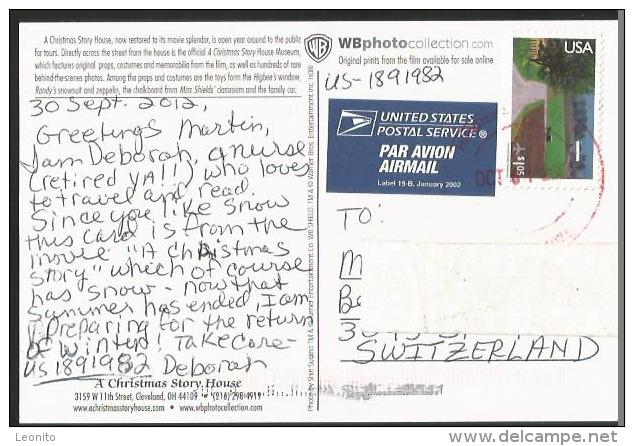 A Christmas Story House, now restored to its movie splendor, is open year around to the public
for tours. Directly across the street from the house is the official A Christmas Story House Museum,
which features original props, costumes and memorabilia from the film, as well as hundreds of rare
behind-the-scenes photos. Among the props and costumes are the toys form the Higbee's window,
Randy's snowsuit and zeppelin, the chalkboard from Miss Shields' classroom and the family car.
30 Sept. 2012,
Greetings Martin,
I am Deborah, a nurse
(retired YA!!) who loves
to travel and read.
Since you like Snow
this card is from the
movie "A Christmas
Story" which of course
has snow - now that
Summer has ended, I am
preparing for the return
of winter! Take Care-
US 1891982 Deborah
A Christmas Story House
3159 W 11th Street, Cleveland, OH 44109 • (216) 298-4919
www.achristmasstoryhouse.com • www.wbphotocollection.com
WB WBphotocollection.com
Original prints from the film available for sale online
US-1891982
USA
UNITED STATES
POSTAL SERVICE®
PAR AVION
AIRMAIL
Label 19-B, January 2002
OCT
TO:
M
SWITZERLAND
Leonito
www.delcampe.net